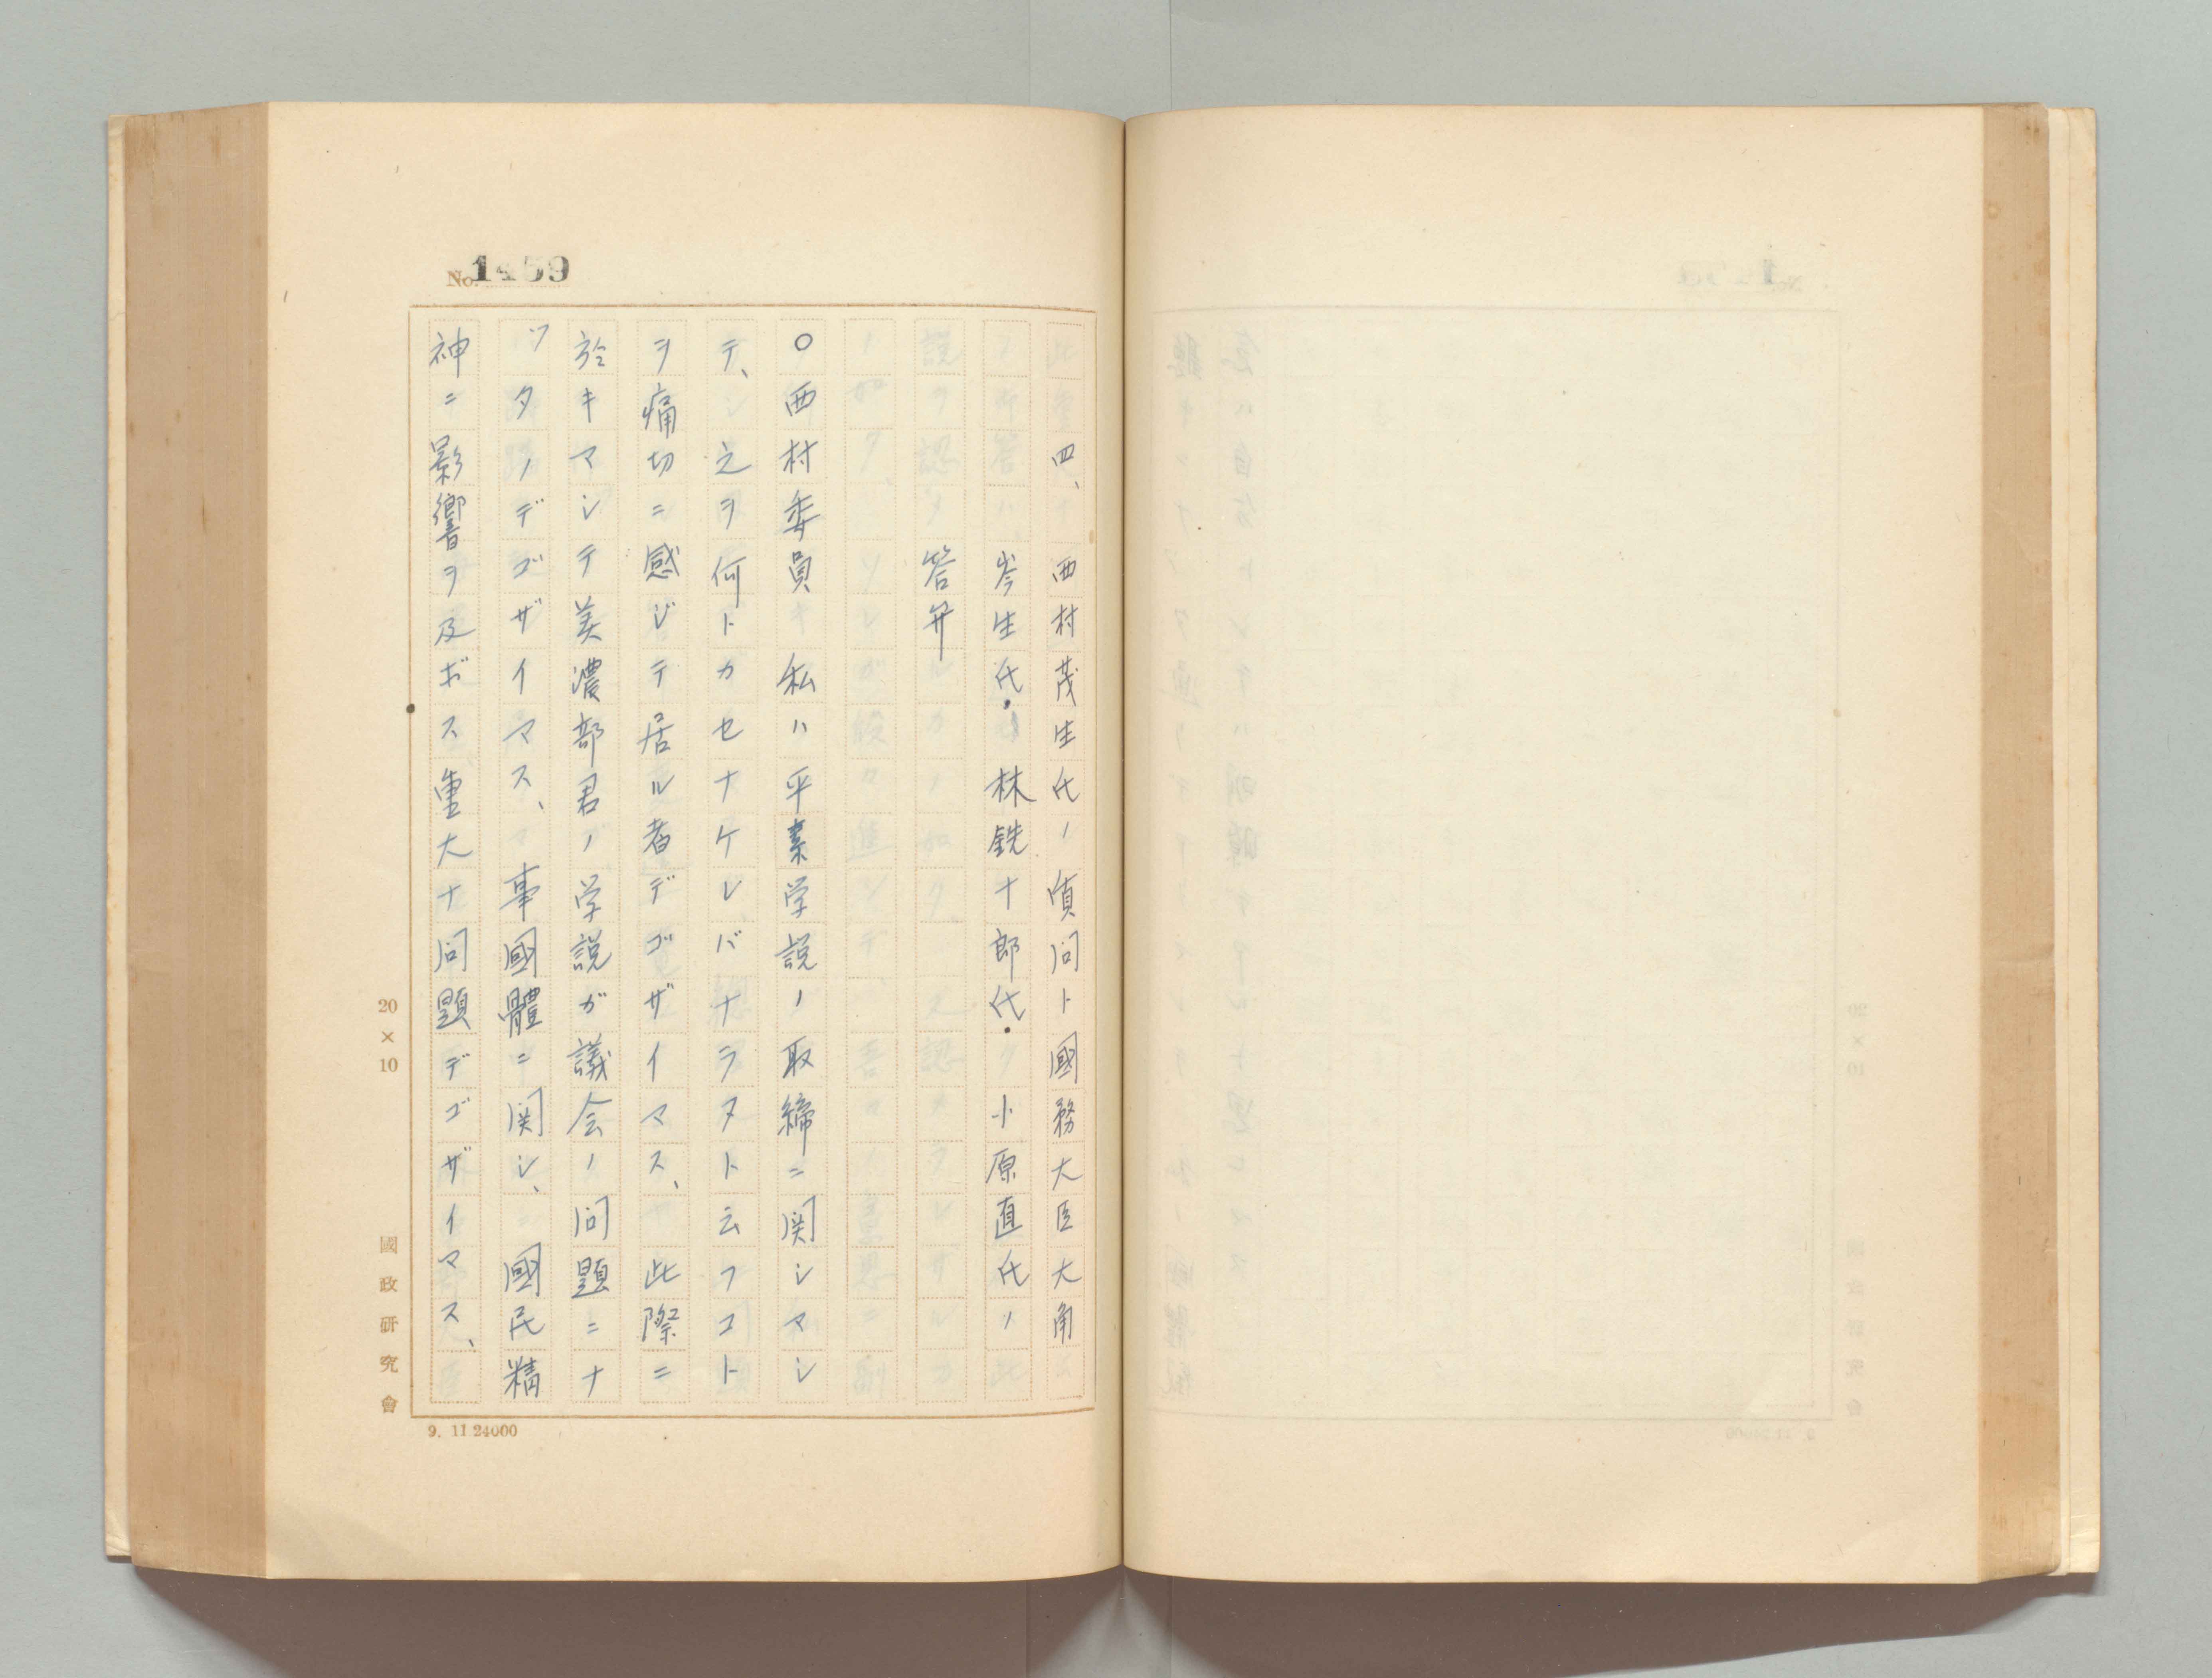 No. 1459
四、西村茂生氏ノ質問ト國務大臣大角
岑生氏・林銑十郎氏・小原直氏ノ
答弁
〇西村委員 私ハ平素学説ノ取締ニ関シマシ
テ、之ヲ何トカセナケレバナラヌト云フコト
ヲ痛切ニ感ジテ居ル者デゴザイマス、此際ニ
於キマシテ美濃部君ノ学説ガ議会ノ問題ニナ
ツタノデゴザイマス、事國體ニ関シ、國民精
神ニ影響ヲ及ボス重大ナ問題デゴザイマス、
20×10
國政研究會
9. 11 24000